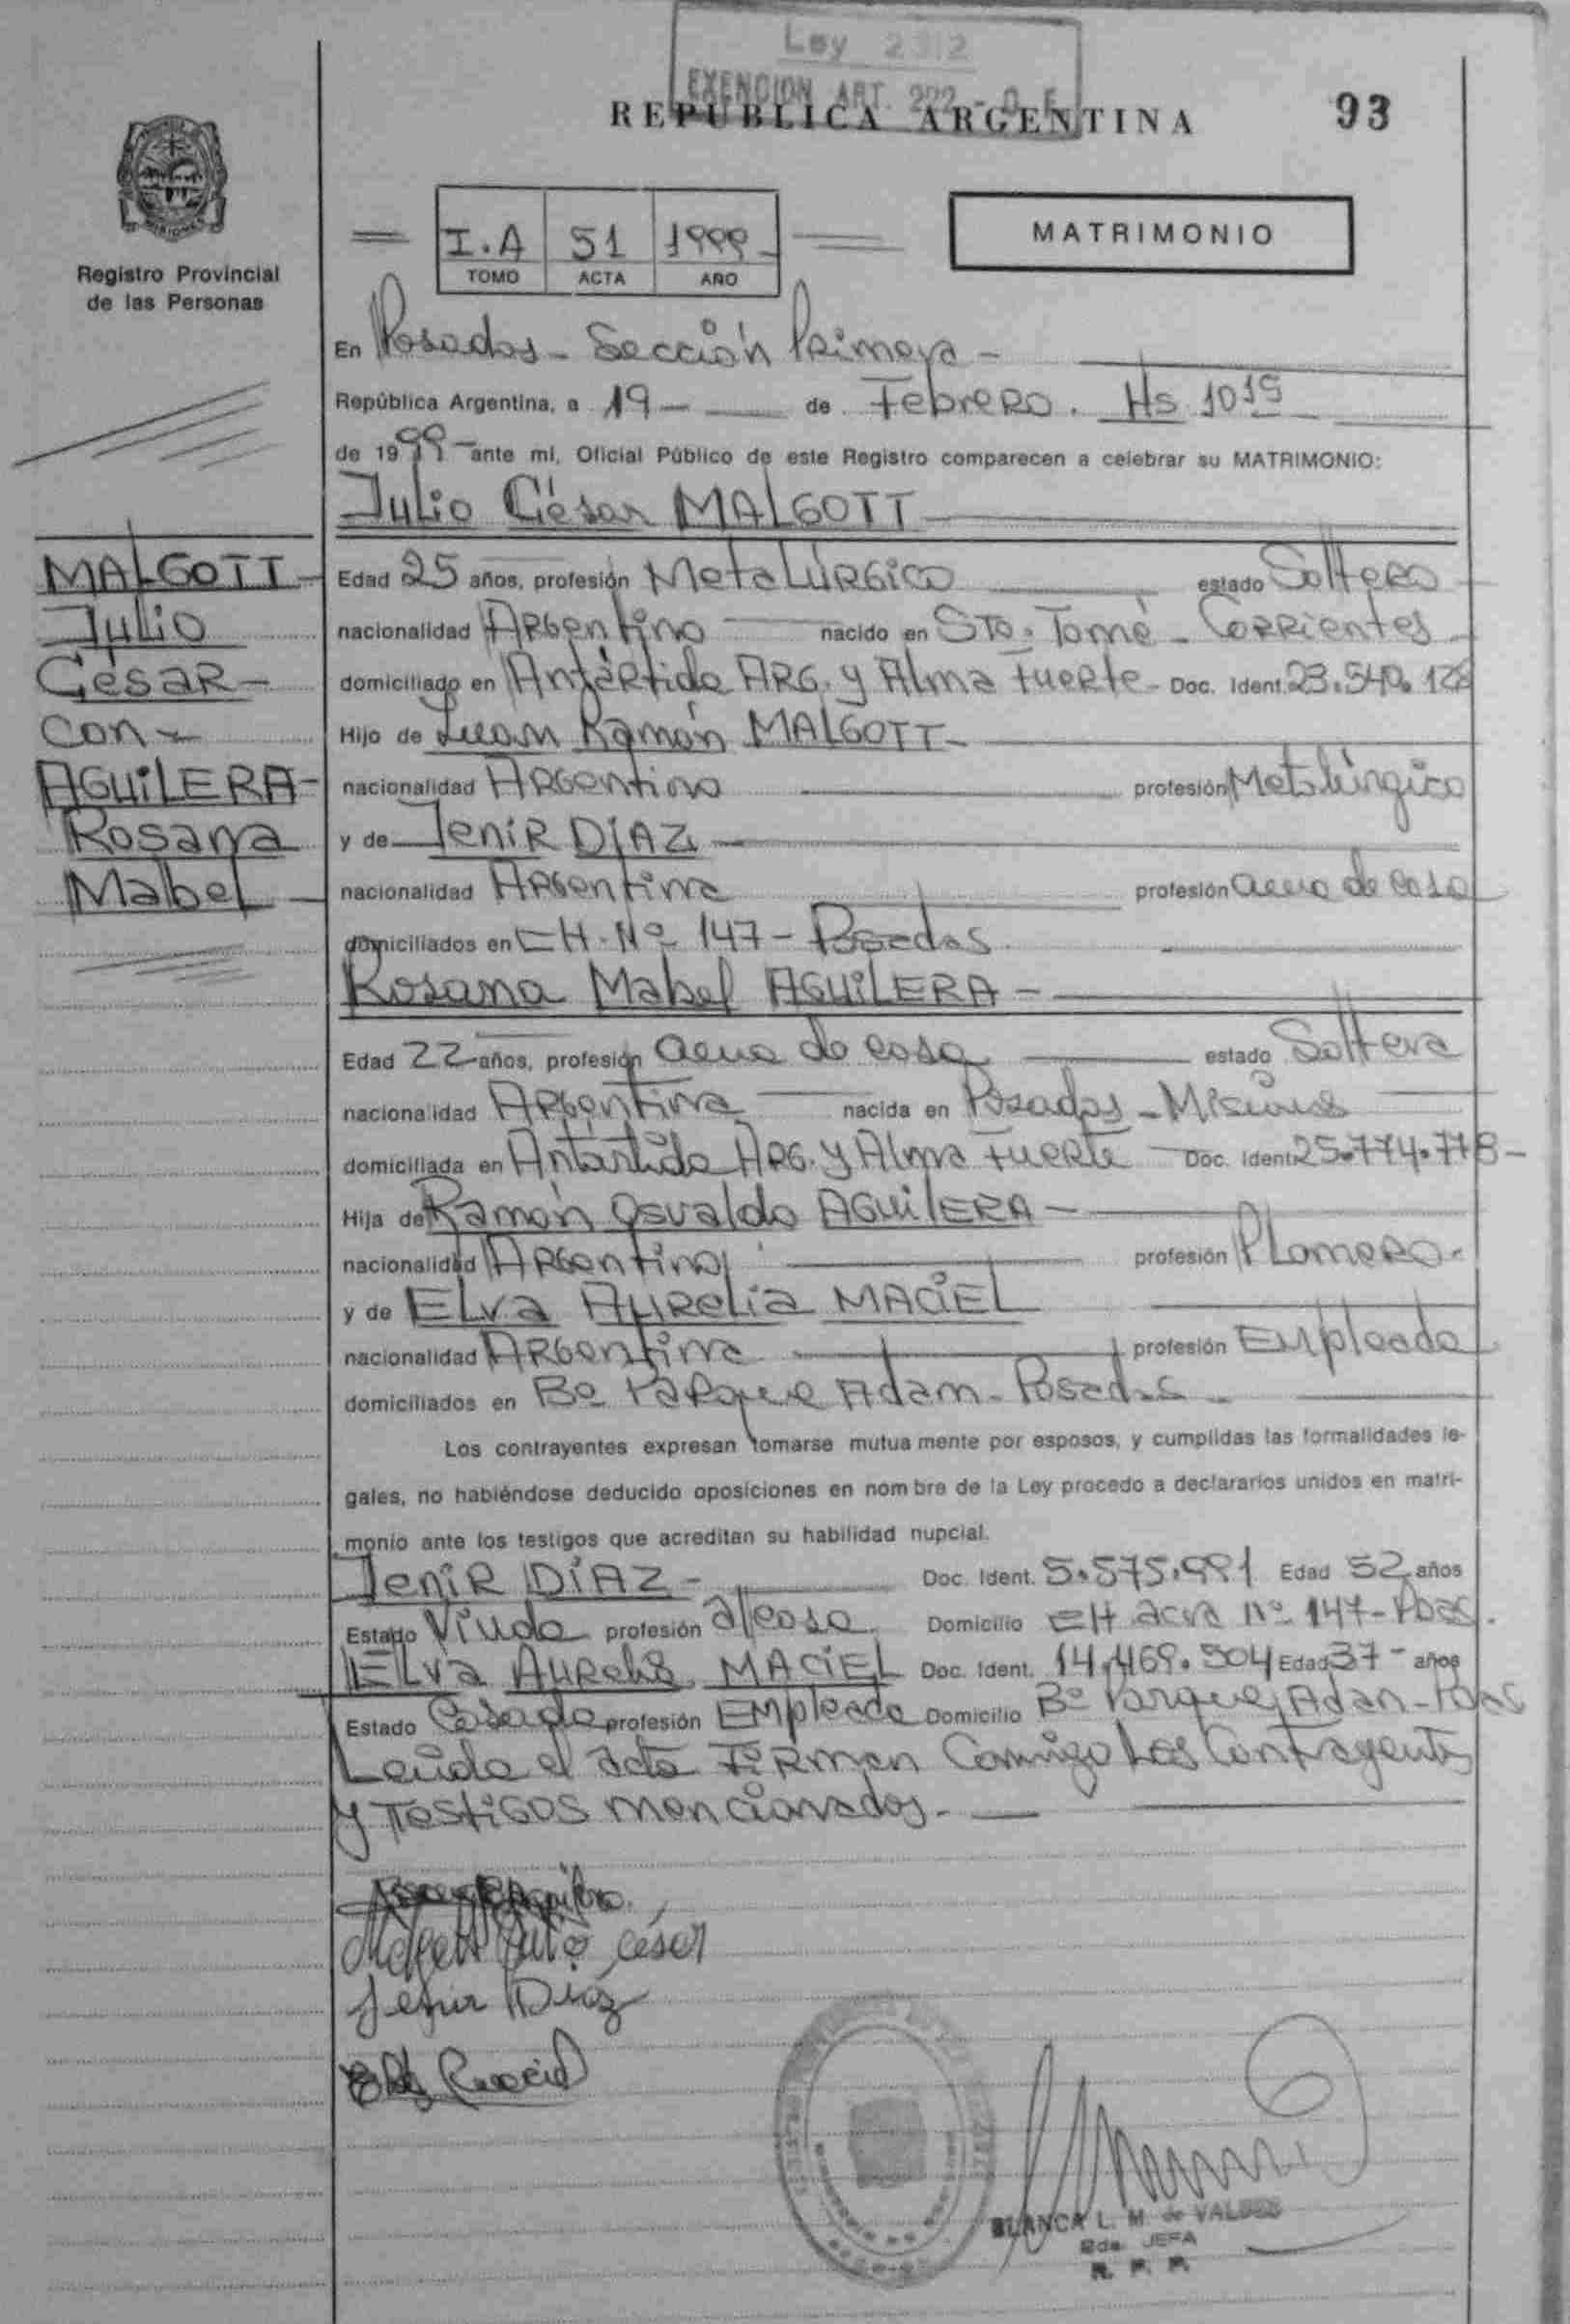 Ley 2312
EXENCION ART. 222 - C. F.
REPUBLICA ARGENTINA
93
Registro Provincial
de las Personas
I.A 51 1999-
TOMO ACTA AÑO
MATRIMONIO
En Posadas - Sección Primera -
República Argentina, a 19 - de Febrero. Hs 10 15
de 1999- ante mí, Oficial Público de este Registro comparecen a celebrar su MATRIMONIO:
Julio César MALGOTT
MALGOTT -
Julio
César -
con -
AGUILERA -
Rosana
Mabel -
Edad 25 años, profesión Metalúrgico estado Soltero
nacionalidad Argentino nacido en Sto. Tomé - Corrientes
domiciliado en Antártida Arg. y Alma Fuerte - Doc. Ident. 23.540.128
Hijo de Juan Ramón MALGOTT -
nacionalidad Argentino profesión Metalúrgico
y de Jenir DÍAZ -
nacionalidad Argentina profesión ama de casa
domiciliados en CH. Nº 147 - Posadas
Rosana Mabel AGUILERA -
Edad 22 años, profesión ama de casa estado Soltera
nacionalidad Argentina nacida en Posadas - Misiones
domiciliada en Antártida Arg. y Alma Fuerte Doc. Ident. 25.774.778 -
Hija de Ramón Osvaldo AGUILERA -
nacionalidad Argentino profesión Plomero -
y de Elva Aurelia MACIEL
nacionalidad Argentina profesión Empleada
domiciliados en Bº Parque Adam - Posadas -
Los contrayentes expresan tomarse mutua mente por esposos, y cumplidas las formalidades le-
gales, no habiéndose deducido oposiciones en nom bre de la Ley procedo a declararlos unidos en matri-
monio ante los testigos que acreditan su habilidad nupcial.
Jenir DÍAZ - Doc. Ident. 5.575.991 Edad 52 años
Estado Viuda profesión a/casa Domicilio CH acra nº 147 - Pdas.
Elva Aurelia MACIEL Doc. Ident. 14.469.504 Edad 37 - años
Estado Casada profesión Empleada Domicilio Bº Parque Adan - Pdas
Leída el acta Firman Conmigo Los Contrayentes
y Testigos mencionados. -
Malgott Julio César
Jenir Díaz
BLANCA L. M. de VALDES
2da. JEFA
R. P. P.